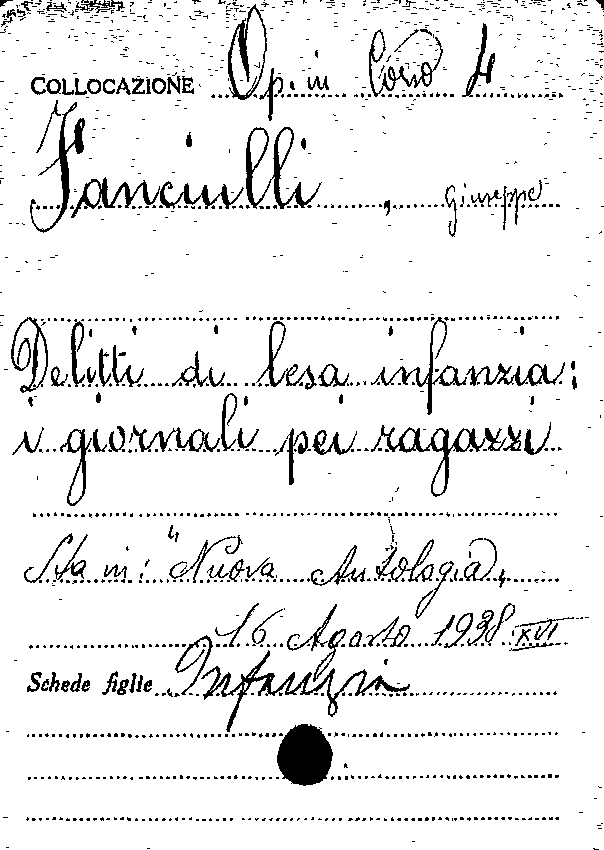 COLLOCAZIONE Op. in Corso 4
Fanciulli, Giuseppe
Delitti di lesa infanzia:
i giornali pei ragazzi
Sta in: "Nuova Antologia",
16 Agosto 1938 XVI
Schede figlie Infanzia